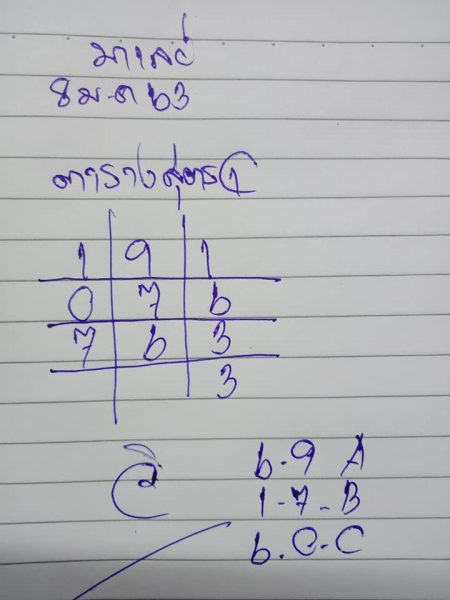 มาเลย์
8 ม.ค 63
ตารางสูตร 1
1 9 1
0 7 6
7 6 3
3
6-9 A
1-7-B
6.0-C